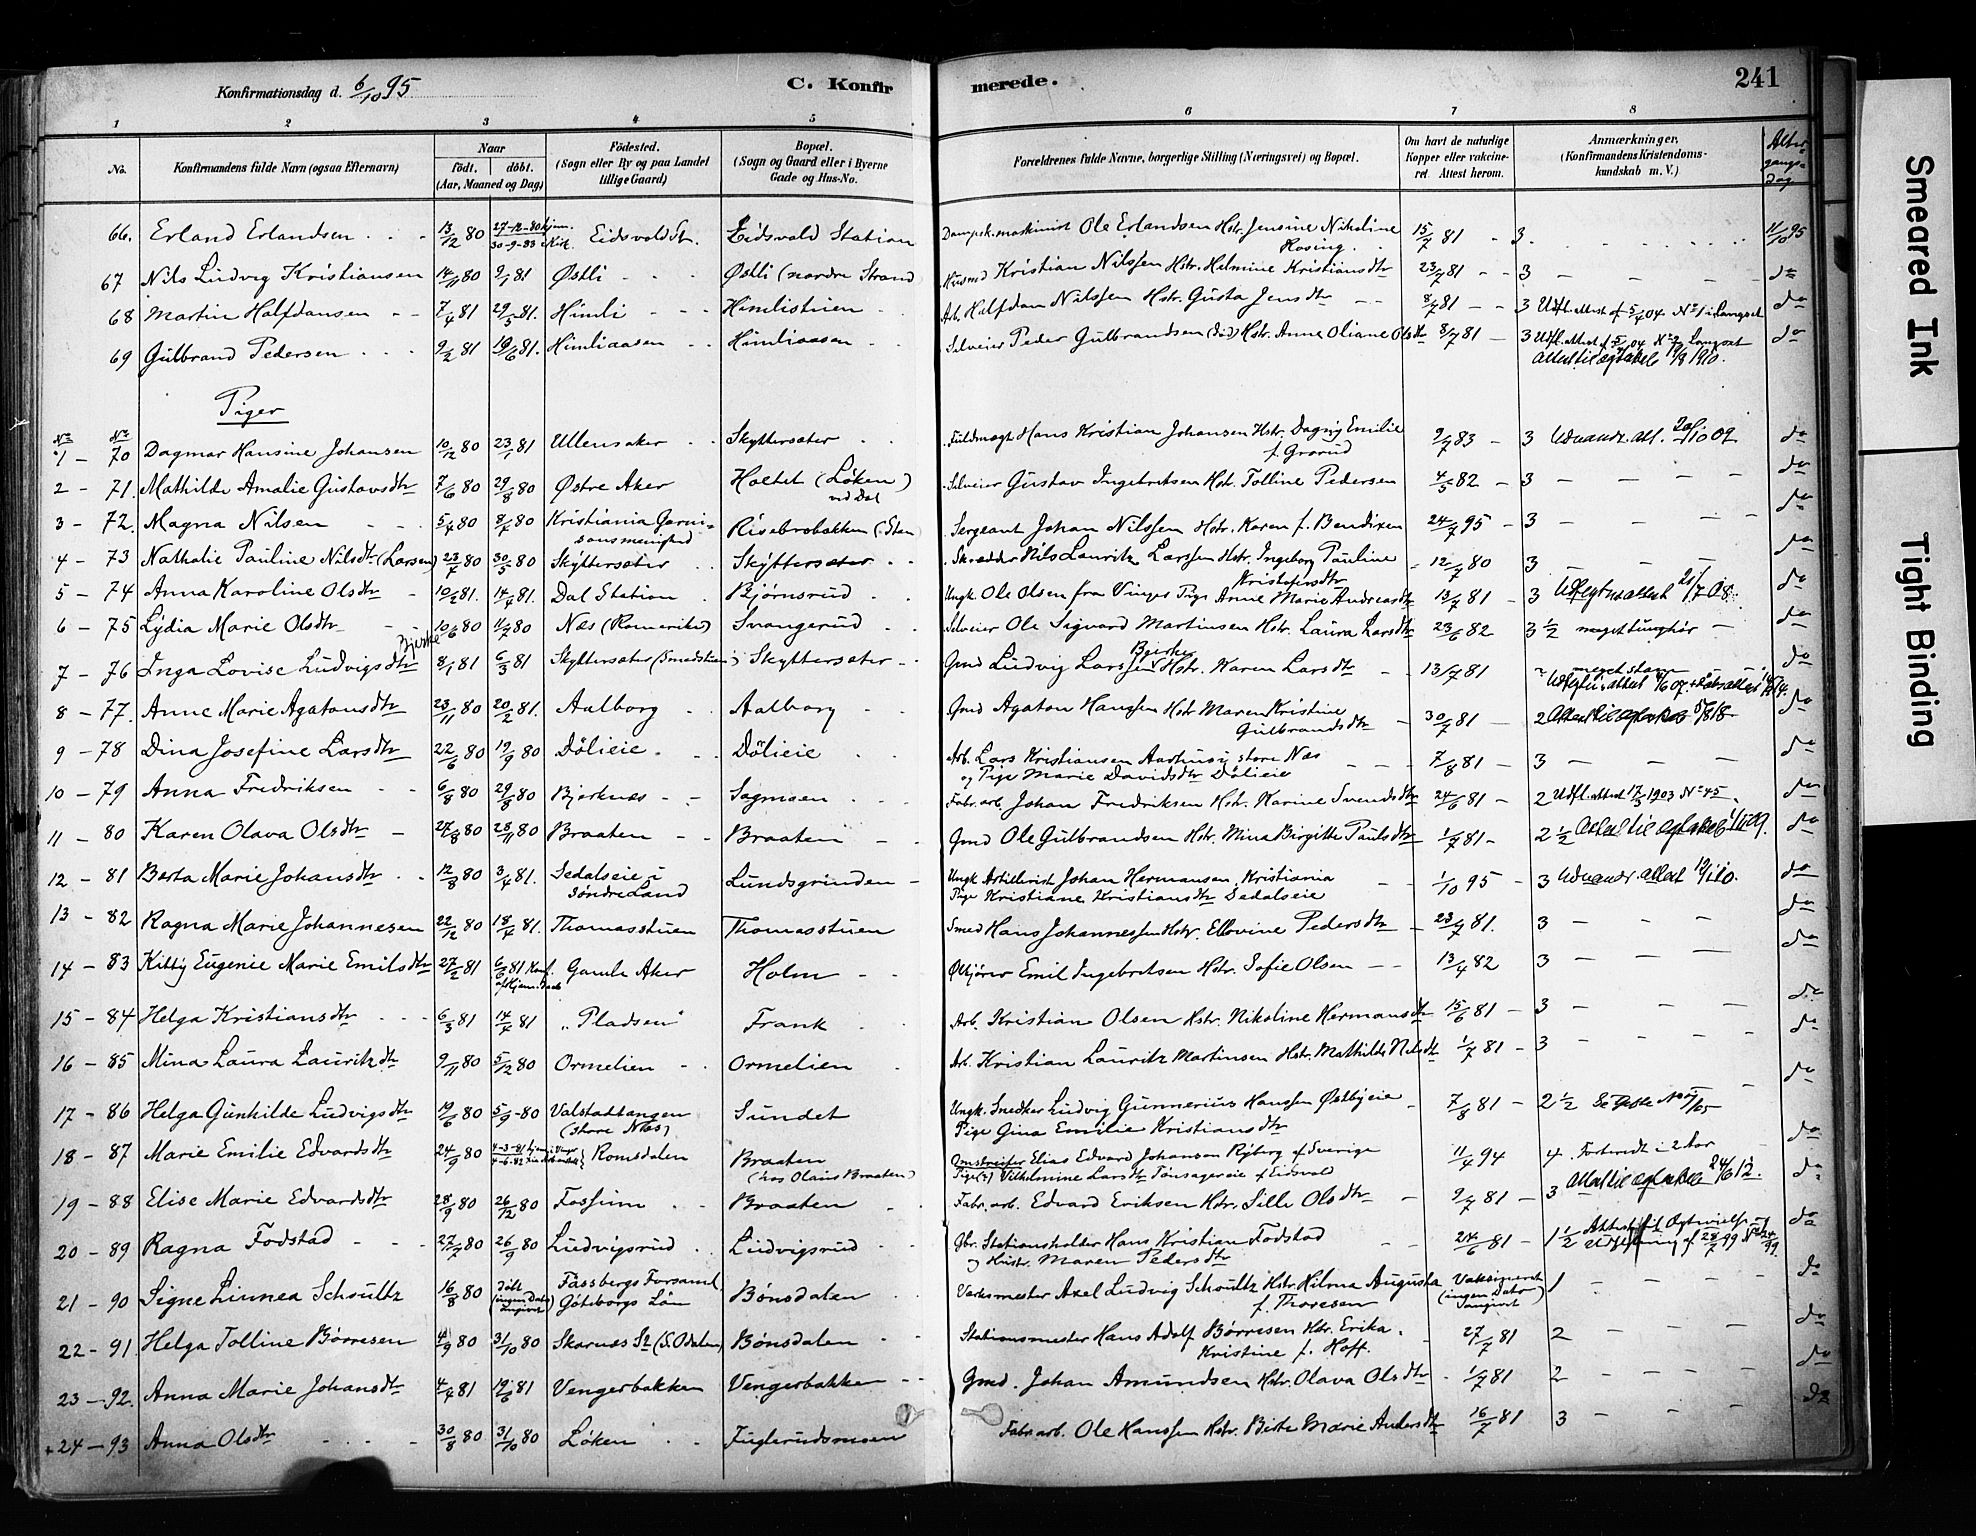 Konfirmationsdag d. 6/10 95
C. Konfirmerede.
241
1 2 3 4 5 6 7 8
No.
Konfirmandens fulde Navn (ogsaa Efternavn)
Naar
Födt. döbt.
(Aar, Maaned og Dag)
Födested.
(Sogn eller By og paa Landet
tillige Gaard)
Bopæl.
(Sogn og Gaard eller i Byerne
Gade og Hus-No.
Forældrenes fulde Navne, borgerlige Stilling (Næringsvei) og Bopæl.
Om havt de naturlige
Kopper eller vakcine-
ret. Attest herom.
Anmærkninger.
(Konfirmandens Kristendoms-
kundskab m. V.)
Alter-
gangs-
dag
66. Erland Erlandsen 13/12 80 27-12-80 hjem. 30-9-83 Eidsvold St. Eidsvold Station Dampsk.maskinist Ole Erlandsen Hstr. Jensine Nikoline Rosing 15/7 81 3. 11/10 95
67 Nils Ludvig Kristiansen 14/11 80 9/1 81 Østli Østli (nordre Strand) Husmd Kristian Nilssen Hstr. Helmine Kristiansdtr 23/7 81 3 do
68 Martin Halfdansen 7/4 81 29/5 81. Himli Himlistuen Arb. Halfdan Nilssen Hstr. Gusta Jensdtr 8/7 81 3 Udfl. attest af 5/7 04 No 1 i Langset do
69 Gulbrand Pedersen 9/2 81 19/6 81. Himliaasen Himliaasen Selveier Peder Gulbrandsen (död) Hstr. Anne Oliane Olsdtr 8/7 81 3 Udfl. attest af 5/7 04 No 2 Langset do
Attest til ægteskab 1/8 1910.
Piger
No No
1 - 70 Dagmar Hansine Johansen 10/12 80 23/1 81 Ullensaker Skyttersæter Fuldmægt Hans Kristian Johansen Hstr. Dagny Emilie f. Grorud 9/7 83 3 Udvandr. att. 20/10 09 do
2 - 71. Mathilde Amalie Gustavsdtr 7/6 80 29/8 80 Østre Aker Holtet (Løken) ved Dal Selveier Gustav Ingebretsen Hstr. Tolline Pedersen 4/5 82 3 do
3 - 72. Magna Nilsen 5/4 80 8/7 80 Kristiania Garnisonsmenighed Risebrobakken (Sten) Sergeant Johan Nilssen Hstr. Karen f. Bendixen 24/7 95 3 do
4 - 73 Nathalie Pauline Nilsdtr (Larsen) 23/4 80 30/5 80 Skyttersæter Skyttersæter Skrædder Nils Lauritz Larssen Hstr. Ingeborg Pauline Kristofersdtr 12/7 80 3 do
5 - 74 Anna Karoline Olsdtr 10/2 81. 14/4 81. Dal Station Bjørnsrud Ungk. Ole Olsen fra Vinger Pige Anne Marie Andreasdtr 13/7 81 3 Udflytnattest 21/7 08. do
6 - 75 Lydia Marie Olsdtr 10/6 80 11/7 80 Næs (Romerike) Svangerud Selveier Ole Sigvard Martinsen Hstr. Laura Larsdtr 23/6 82 3 1/2 meget tunghør do
7 - 76 Inga Lovise Ludvigsdtr Bjerke 8/1 81 6/3 81 Skyttersæter (Smedstuen) Skyttersæter Gmd Ludvig Larssen Bjerke Hstr. Karen Larsdtr 13/7 81 meget stam do
8 - 77. Anne Marie Agatonsdtr 23/11 80 20/2 81. Aalborg Aalborg Gmd Agaton Hanssen Hstr. Maren Kristine Gulbrandsdtr 30/7 81 2 Attest til ægteskab do
9 - 78 Dina Josefine Larsdtr 22/6 80 19/9 80 Dölieie Dölieie Arb. Lars Kristiansen Aarhus i store Næs og Pige Marie Davidsdtr Dölieie 7/8 81 3 do
10 - 79 Anna Fredriksen 6/8 80 29/8 80 Bjerknæs Sagmoen Fabr. arb. Johan Fredriksen Hstr. Karine Svendsdtr 24/6 81 2 Udfl. attest 17/3 1903 No 45 do
11 - 80 Karen Olava Olsdtr 27/8 80 28/11 80 Braaten Braaten Gmd Ole Gulbrandsen Hstr. Mina Birgitte Paulsdtr 1/7 81 2 1/2 Attest til ægteskab do
12 - 81 Berta Marie Johansdtr 12/8 80 3/4 81. Dedalseie i Søndre Land Lundsgrinden Ungk. Artillerist Johan Hermansen, Kristiania Pige Kristiane Kristiansdtr Dedalseie 1/10 95 3 Udvandr. attest do
13 - 82 Ragna Marie Johannesen 22/12 80 18/4 81. Thomasstuen Thomasstuen Smed Hans Johannessen Hstr. Ellovine Pedersdtr 23/7 81. 3 do
14 - 83 Kitty Eugenie Marie Emilsdtr 27/2 81 6/6 81 Konf. af hjem.daab Gamle Aker Holm Ølkjører Emil Ingebretsen Hstr. Sofie Olsen 13/4 82 3 do
15 - 84 Helga Kristiansdtr 6/3 81 14/4 81 "Pladsen" Frank Arb. Kristian Olsen Hstr. Nikoline Hermansdtr 15/6 81 3 do
16 - 85 Mina Laura Lauritzdtr 9/11 80 5/12 80 Ormelien Ormelien Arb. Kristian Lauritz Martinsen Hstr. Mathilde Nilsdtr 1/7 81 3 do
17 - 86 Helga Gunhilde Ludvigsdtr 19/6 80 5/9 80 Valstadtangen (store Næs) Sundet Ungk. Snedker Ludvig Gunnerius Hanssen Østbyeie Pige Gina Emilie Kristiansdtr 7/8 81 2 1/2 do
18 - 87 Marie Emilie Edvardsdtr 24/9 80 Romsdalen Braaten (hos Olaus Braaten) Elias Edvard Johanson Ryberg af Sverige Pige Vilhelmine Larsdtr Tönsagereie af Eidsvold 11/4 94 4 Forberedt i 2 Aar do
19 - 88 Elise Marie Edvardsdtr 28/9 80 26/12 80 Fossum Braaten Fabr. arb. Edvard Eriksen Hstr. Sille Olsdtr 9/7 81 3 Attest til ægteskab 24/6 12. do
20 - 89 Ragna Fodstad 27/7 80 26/9 80 Ludvigsrud Ludvigsrud Gbr. Stationsholder Hans Kristian Fodstad og Hustr. Maren Pedersdtr 24/6 81 1 1/2 do
21 - 90 Signe Linnea Schoultz 16/8 80 Döbt (ingen Dato angivet) Fässbergs Forsaml. Göteborgs Län Bönsdalen Værksmester Axel Ludvig Schoultz Hstr. Hilma Augusta f. Thoresen Vaksineret (ingen Dato angivet) 1 do
22 - 91 Helga Tolline Børresen 4/9 80 31/10 80 Skarnæs St. (S. Odalen) Bönsdalen Stationsmester Hans Adolf Børresen Hstr. Erika Kristine f. Hoff. 27/7 81 2 do
23 - 92. Anna Marie Johansdtr 4/4 81 19/6 81 Vengerbakken Vengerbakken Gmd. Johan Amundsen Hstr. Olava Olsdtr 1/7 81 2 do
24 - 93 Anna Olsdtr 30/8 80 31/10 80 Løken Fuglerudsmoen Fabr. arb. Ole Hanssen Hstr. Berte Marie Andersdtr 16/7 81 3 do
Smeared Ink
Tight Binding